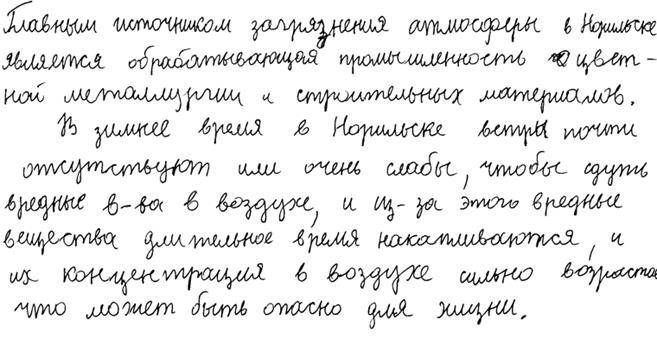 Главным источником загрязнения атмосферы в Норильске
является обрабатывающая промышленность цвет-
ной металлургии и строительных материалов.
В зимнее время в Норильске ветры почти
отсутствуют или очень слабы, чтобы сдуть
вредные в-ва в воздухе, и из-за этого вредные
вещества длительное время накапливаются, и
их концентрация в воздухе сильно возрастае
что может быть опасно для жизни.